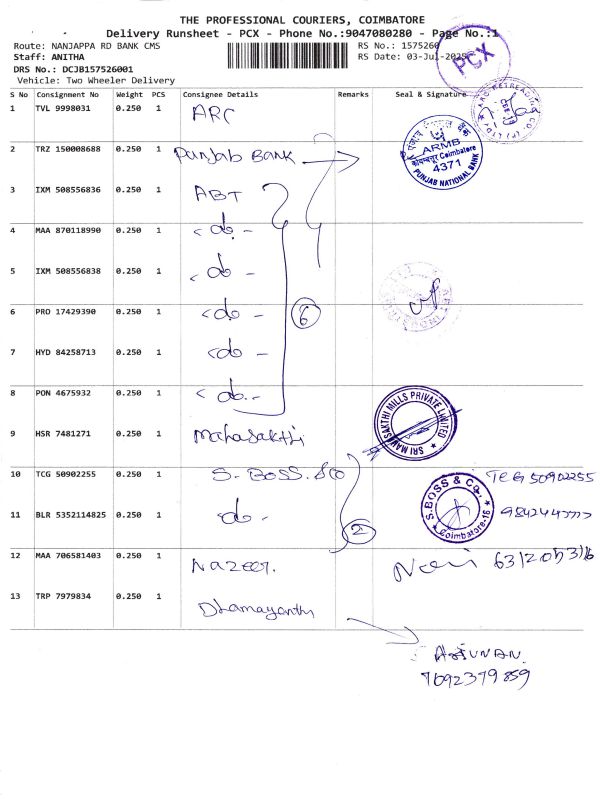 THE PROFESSIONAL COURIERS, COIMBATORE
Delivery Runsheet - PCX - Phone No.:9047080280 - Page No.:1
Route: NANJAPPA RD BANK CMS
RS No.: 1575260
Staff: ANITHA
RS Date: 03-Jul-2025
DRS No.: DCJB157526001
Vehicle: Two Wheeler Delivery
PCX
S No Consignment No Weight PCS Consignee Details Remarks Seal & Signature
1 TVL 9998031 0.250 1 ARC
2 TRZ 150008688 0.250 1 Punjab Bank
ARMB
कोयम्बटूर Coimbatore
4371
PUNJAB NATIONAL BANK
3 IXM 508556836 0.250 1 ABT
4 MAA 870118990 0.250 1 - do. -
5 IXM 508556838 0.250 1 - do -
6 PRO 17429390 0.250 1 - do - 6
7 HYD 84258713 0.250 1 - do -
8 PON 4675932 0.250 1 - do. -
9 HSR 7481271 0.250 1 Mahasakthi
SRI MAHASAKTHI MILLS PRIVATE LIMITED
10 TCG 50902255 0.250 1 S. BOSS. &co
TCG 50902255
S.BOSS & Co.
Coimbatore-18
11 BLR 5352114825 0.250 1 - do - 2
12 MAA 706581403 0.250 1 Nazeer.
13 TRP 7979834 0.250 1 Dhamayanthi
ARJUNAN
7092379859